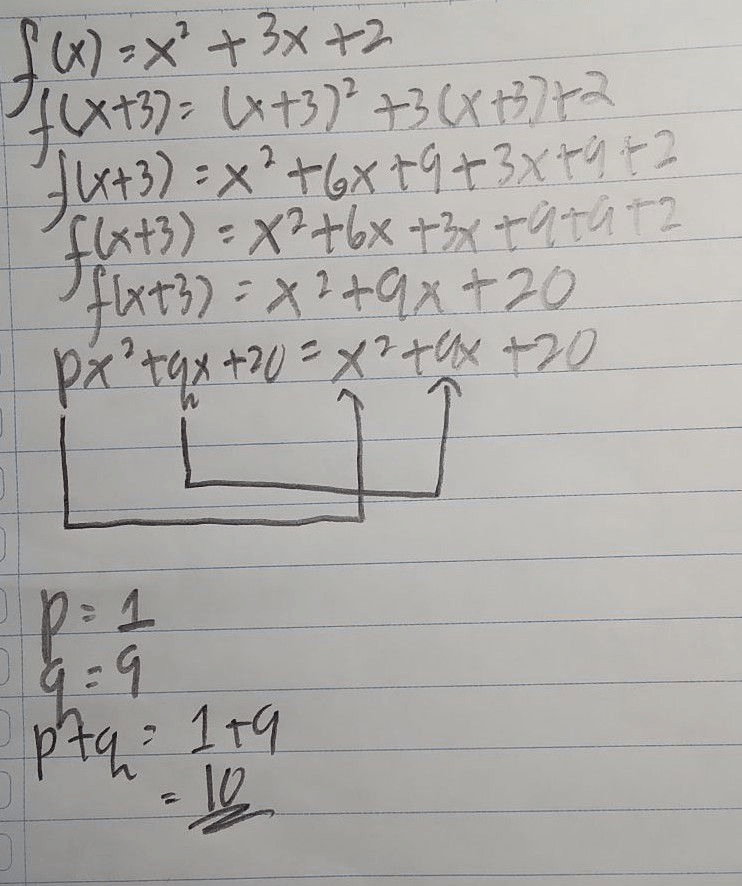 f(x) = x² + 3x + 2
f(x+3) = (x+3)² + 3(x+3) + 2
f(x+3) = x² + 6x + 9 + 3x + 9 + 2
f(x+3) = x² + 6x + 3x + 9 + 9 + 2
f(x+3) = x² + 9x + 20
px² + qx + 20 = x² + 9x + 20
p = 1
q = 9
p + q = 1 + 9
= 10